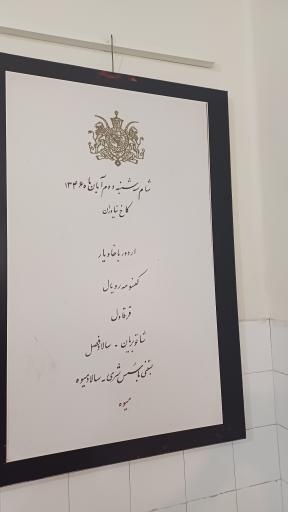 شام سه شنبه دوم آبان ماه ۱۳۴۶
کاخ نیاوران
اردور با خاویار
کنسومه رویال
قرقاول
شاتوبریان - سالاد فصل
بستنی با سس تمشک - سالاد میوه
میوه